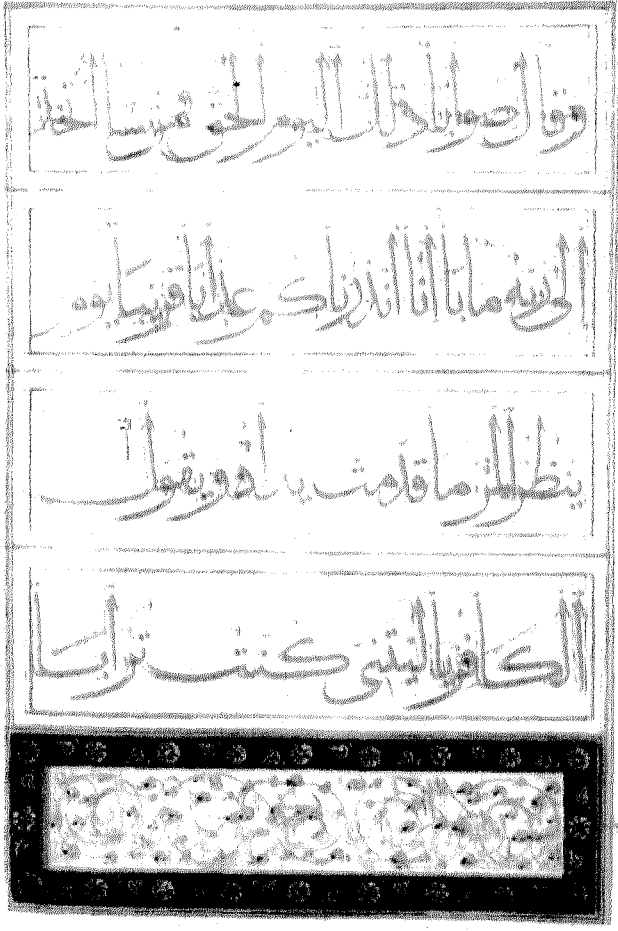 وقال صوابا ذلك اليوم الحق فمن شا اتخذ
الى ربه مابا انا انذرناكم عذابا قريبا يوم
ينظر المر ما قدمت يداه ويقول
الكافر ياليتنى كنت ترابا